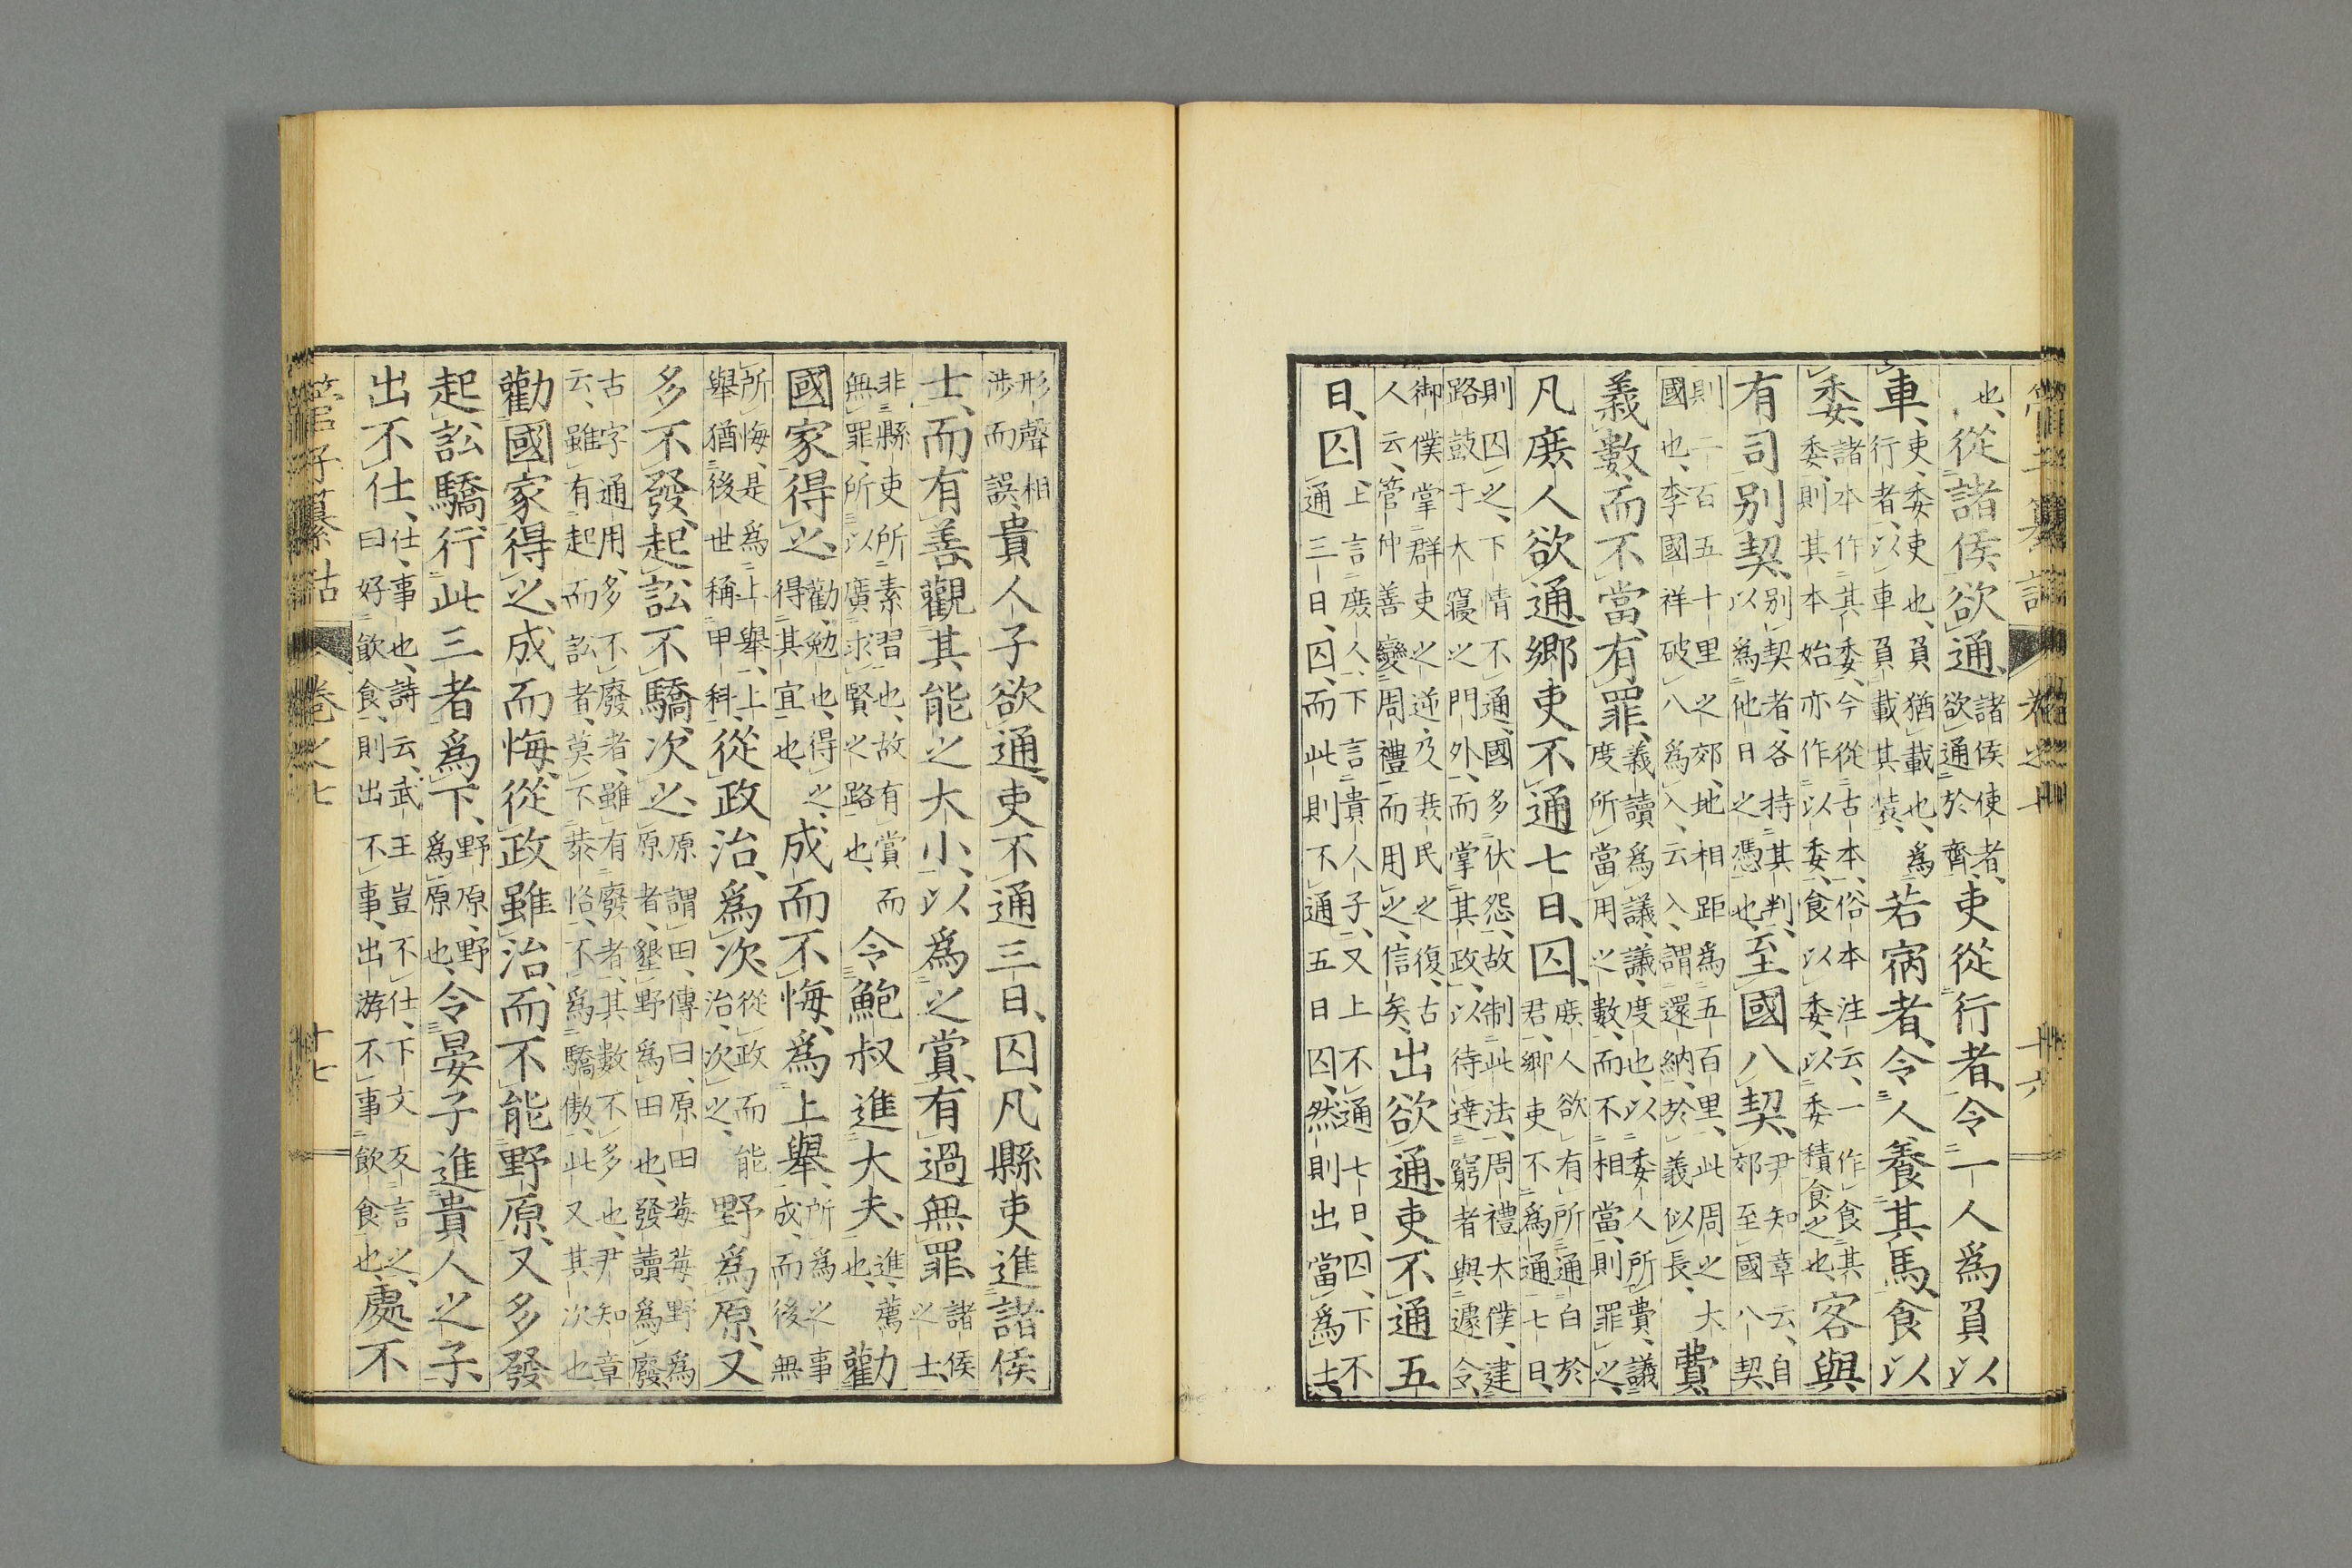 也、從諸侯欲通、諸侯使者、欲通於齊、吏從行者、令一人爲負以
車、吏、委吏也、負猶載也、爲行者、以車負載其裝、若宿者、令人養其馬、食以
委、諸本作其委、今從古本、俗本注云、一作食其委、則其本始亦作以委、食以委、以委積食之也、客與
有司別契、別契者、各持其判、以爲他日之憑也、至國八契、尹知章云、自郊至國八契、
則二百五十里之郊、地相距爲五百里、此周之大國也、李國祥破八爲入、云入、謂還納、於義似長、費
義數而不當、有罪、義讀爲議、議、度也、以委人所費、議度所當用之數、而不相當、則罪之、
凡庶人欲通、鄉吏不通七日、囚、庶人欲有所通白於君、鄉吏不爲通七日、
則囚之、下情不通、國多伏怨、故制此法、周禮大僕、建路鼓于大寢之門外、而掌其政、以待達窮者與遽令、
御僕掌群吏之逆及庶民之復、古人云、管仲善變周禮而用之、信矣、出欲通、吏不通五
日、囚、上言庶人、下言貴人子、又上不通七日囚、下不通三日囚、而此則不通五日囚、然則出當爲士、
形聲相涉而誤、貴人子欲通、吏不通三日、囚、凡縣吏進諸侯
士、而有善、觀其能之大小、以爲之賞、有過無罪、諸侯之士、
非縣吏所素習也、故有賞而無罪、所以廣求賢之路也、令鮑叔進大夫、進、薦也、勸
國家、得之、勸、勉也、得之、得其宜也、成而不悔、爲上舉、所爲之事成、而後無
所悔、是爲上舉、上舉猶後世稱甲科、從政治、爲次、從政而能治、次之、野爲原、又
多不發、起訟不驕、次之、原謂田、傳曰、原田莓莓、野爲原者、墾野爲田也、發讀爲廢、
古字通用、多不廢者、雖有廢者、其數不多也、尹知章云、雖有起而訟者、莫不恭恪、不爲驕傲、此又其次也、
勸國家、得之、成而悔、從政雖治、而不能野原、又多發
起訟驕、行此三者爲下、野原、野爲原也、令晏子進貴人之子、
出不仕、仕、事也、詩云、武王豈不仕、下文反言之、曰好飲食、則出不事、出游不事飲食也、處不
管子纂詁 卷之七 十七